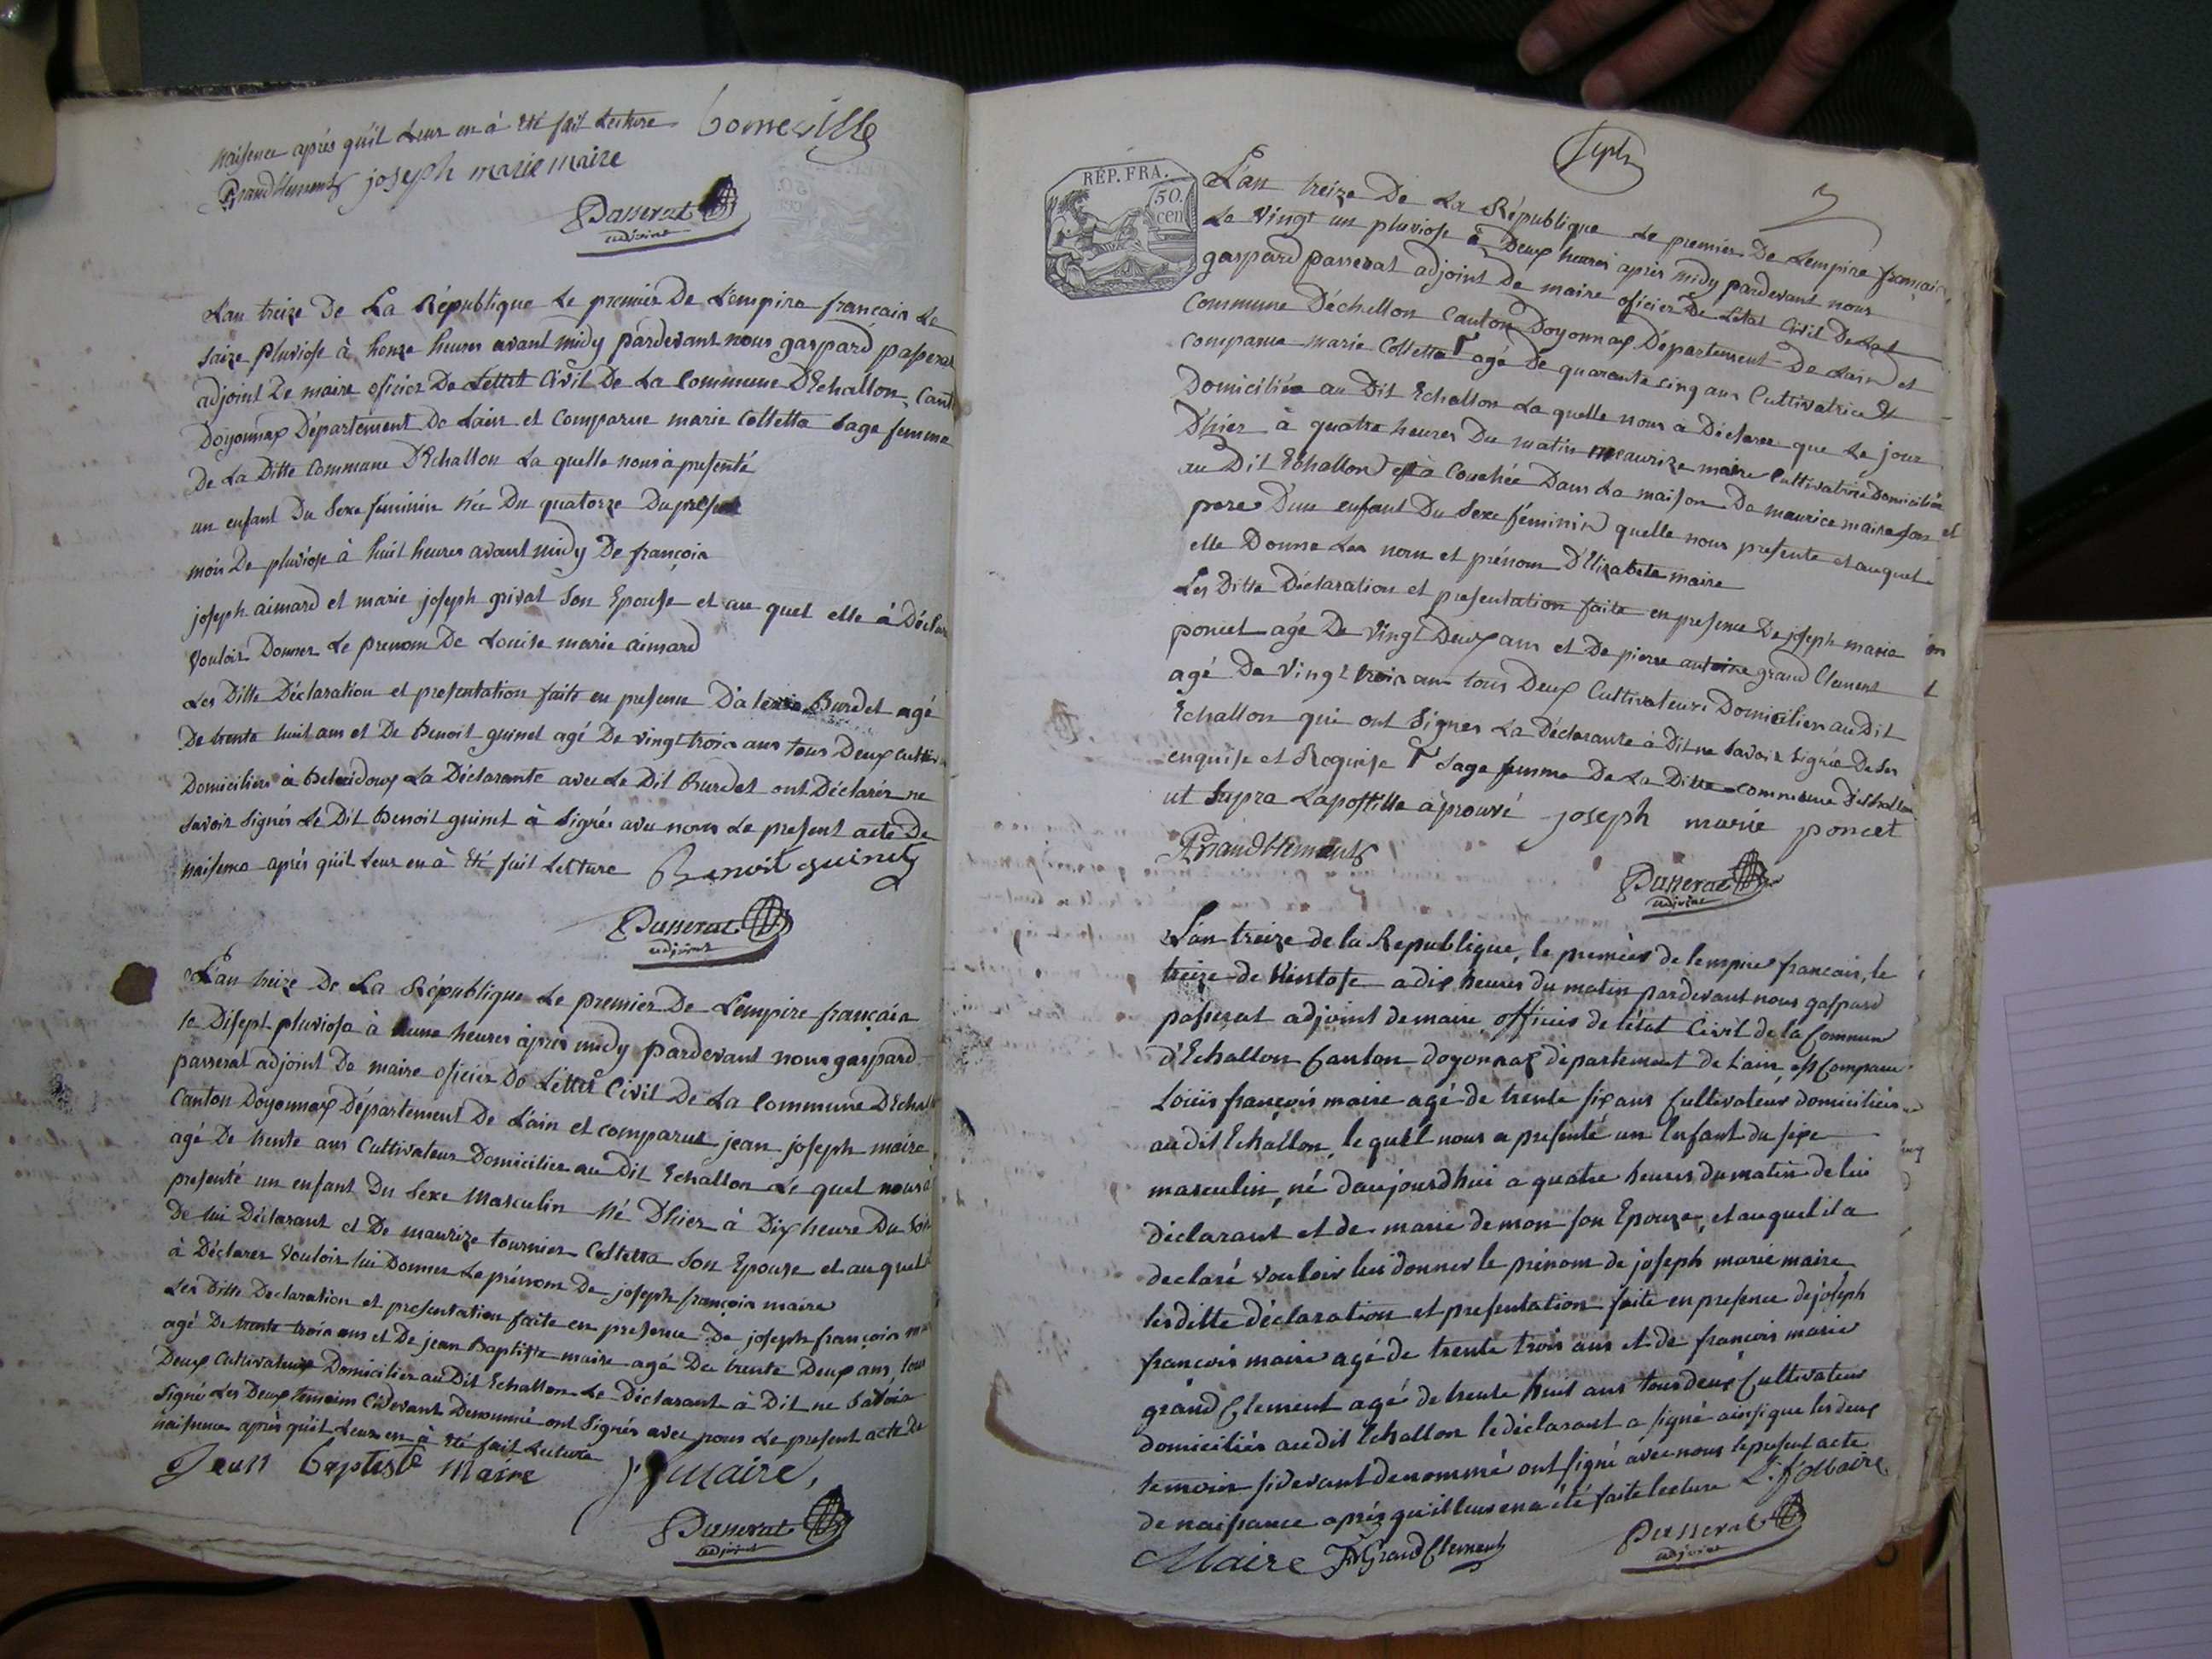 naissence après qu'il Leur en à Eté fait Lecture Bonneville
PGrandClement joseph marie maire
Passerat
adjoint
L'an treize De La République Le premier De L'empire francain Le
saize Pluviose à honze heures avant midy pardevant nous gaspard passerat
adjoint De maire oficier De Lettat Civil De La Commune D'Echallon, Cant
Doyonnax Département De Lain et Comparue marie Colletta Sage femme
De La Ditte Commune D'Echallon La quelle nous à presenté
un enfant Du Sexe féminin née Du quatorze Du present
mois De pluviose à huit heures avant midy De françois
joseph aimard et marie joseph grivat Son Epouse et au quel elle à Déclaré
Vouloir Donner Le prenom De Louise marie aimard
Les Ditte Déclaration et presentation faite en presence D'alexis Burdet agé
De trente huit ans et De Benoit guinet agé De vingt trois ans tous Deux cultiv
Domiciliers à Beleidoux La Déclarante avec Le Dit Burdet ont Déclarér ne
Savoir Signés Le Dit Benoit guinet à Signér avec nous Le present acte De
naissence après qu'il Leur en à Eté fait Lecture Benoit guinet
Passerat
adjoint
L'an treize De La République Le premier De L'empire françain
le Disept pluviose à une heures après midy pardevant nous gaspard
passerat adjoint De maire oficier De Lettat Civil De La Commune D'Echal
Canton Doyonnax Département De L'ain et comparut jean joseph maire
agé De trente ans Cultivateur Domicilier au Dit Echallon Le quel nous à
presenté un enfant Du Sexe Masculin Né D'hier à Dix heure Du Soir
De lui Déclarant et De maurize tournier Colletta Son Epouze et au quel il
à Déclarer Vouloir lui Donner Le prénom De joseph françois maire
Les Ditte Declaration et presentation faite en presence De joseph françois mai
agé De trente trois ans et De jean Baptiste maire agé De trente Deux ans, tous
Deux Cultivateurs Domicilier au Dit Echallon Le Déclarant à Dit ne Savoir
Signé Les Deux temoins Cidevant Denommé ont Signés avec nous Le present acte De
naissence après qu'il Leur en à Eté fait Lecture
Jean Baptiste Maire jfmaire,
Passerat
adjoint
Sept
RÉP. FRA.
50.
cen
L'an treize De La République Le premier De L'empire françain
Le Vingt un pluviose à Deux heures après midy pardevant nous
gaspard passerat adjoint De maire oficier De Létat Civil De La
Commune D'échellon Canton Doyonnax Département De Lain et
comparue marie Colletta agé De quarante cinq ans Cultivatrice
Domiciliée au Dit Echallon La quelle nous à Déclaree que Le jour
D'hier à quatre heures Du matin maurize maire Cultivatrice Domiciliée
au Dit Echallon est à Couchée Dans La maison De maurice maire Son
pere D'un enfant Du Sexe féminin quelle nous presente et auquel
elle Donne Les nom et prénom D'Elizabete maire
Les Ditte Déclaration et presentation faite en presence De joseph marie
poncet agé De Vingt Deux ans et De pierre antoine grand Clement
agé De Vingt trois ans tous Deux Cultivateurs Domiciliers au Dit
Echallon qui ont Signer La Déclarante à Dit ne Savoir Signée De Ses
enquise et Requise Sage femme De La Ditte commune D'echallon
ut Supra Lapostille aprouvé joseph marie poncet
PGrandClement
Passerat
adjoint
L'an treize de la Republique, le premier de lempire francois, le
treize de Ventose a dix heures du matin pardevant nous gaspard
passerat adjoint de maire, officier de l'état Civil de la Commune
d'Echallon Canton doyonnax département de L'ain, est Comparu
Loüis françois maire agé de trente six ans Cultivateur domiciliér
au dit Echallon, le quel nous a présenté un Enfant du sexe
masculin, né d'aujourdhui a quatre heures du matin de lui
déclarant et de marie demon son Epouze, et auquel il a
declaré vouloir lui donner le prénom de joseph marie maire
les ditte déclaration et presentation faite en presence de joseph
francois maire agé de trente trois ans et de françois marie
grand Clement agé de trente huit ans tous deux Cultivateur
domiciliés au dit Echallon le déclarant a signé ainsi que les deux
temoin sidevant denommé ont signé avec nous le present acte
de naissance après qu'il leur en a été faite lecture L. f. Maire
Maire FMGrandClement
Passerat
adjoint